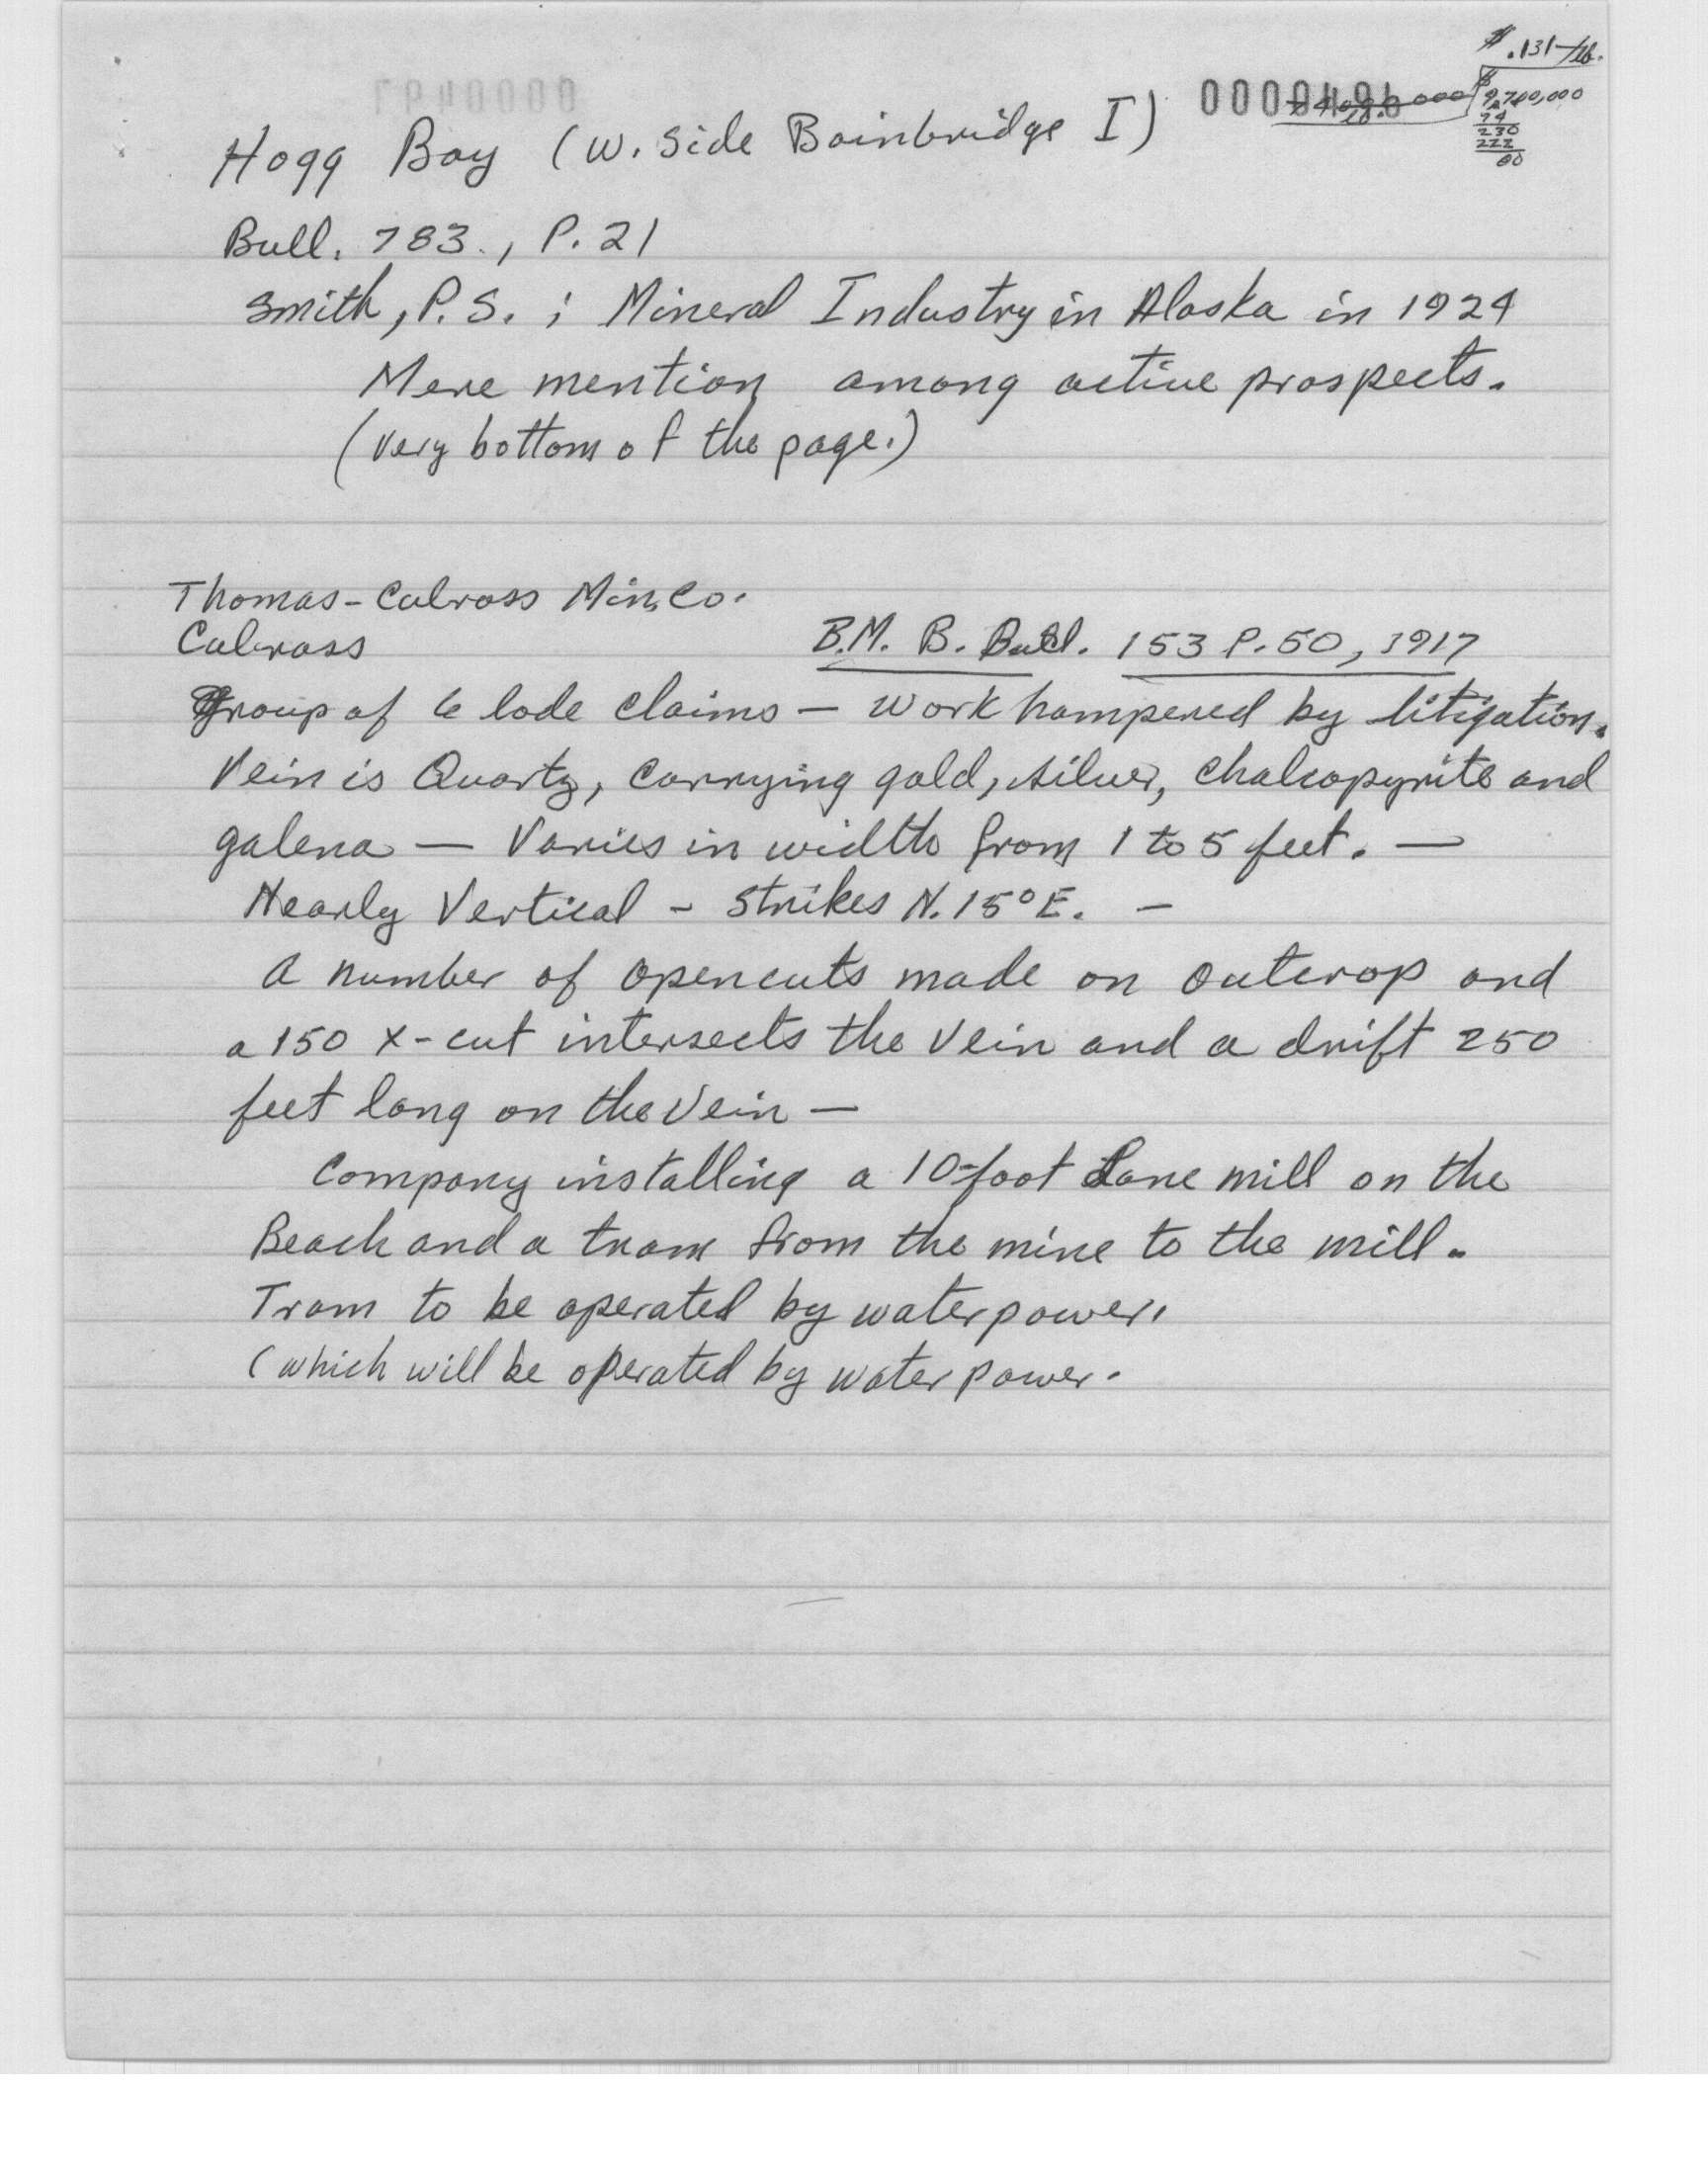 $ .131/lb.
$ 9,700,000
74
230
222
80
Hogg Bay (W. Side Bainbridge I)
Bull. 783., P. 21
Smith, P. S. ; Mineral Industry in Alaska in 1924
Mere mention among active prospects.
(very bottom of the page.)
Thomas-Culross Min. Co.
Culross
B.M. B. Bull. 153 P. 50, 1917
Group of 6 lode claims — work hampered by litigation.
Vein is Quartz, carrying gold, silver, chalcopyrite and
galena — Varies in width from 1 to 5 feet. —
Nearly Vertical - Strikes N. 15° E. —
A number of opencuts made on outcrop and
a 150 x-cut intersects the vein and a drift 250
feet long on the vein —
Company installing a 10-foot Lane mill on the
Beach and a tram from the mine to the mill.
Tram to be operated by waterpower.
(which will be operated by water power.